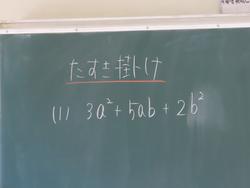 たすき掛け
(1) 3a²+5ab+2b²